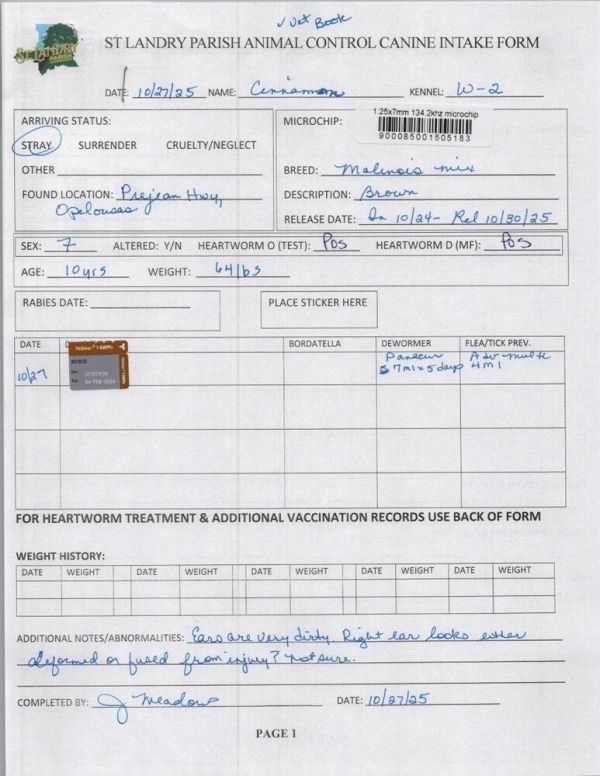 ✓ Vet Book
ST LANDRY PARISH
ST LANDRY PARISH ANIMAL CONTROL CANINE INTAKE FORM
DATE: 10/27/25 NAME: Cinnamon KENNEL: W-2
ARRIVING STATUS:
STRAY SURRENDER CRUELTY/NEGLECT
OTHER
FOUND LOCATION: Prejean Hwy,
Opelousas
MICROCHIP:
1.25x7mm 134.2khz microchip
900085001505183
BREED: Malinois mix
DESCRIPTION: Brown
RELEASE DATE: In 10/24 - Rel 10/30/25
SEX: F ALTERED: Y/N HEARTWORM O (TEST): Pos HEARTWORM D (MF): Pos
AGE: 10yrs WEIGHT: 64lbs
RABIES DATE:
PLACE STICKER HERE
DATE BORDATELLA DEWORMER FLEA/TICK PREV.
10/27 Nobivac 1-DAPPv Panacur Adv multi
7ml x 5 days 4ml
FOR HEARTWORM TREATMENT & ADDITIONAL VACCINATION RECORDS USE BACK OF FORM
WEIGHT HISTORY:
DATE WEIGHT DATE WEIGHT DATE WEIGHT DATE WEIGHT DATE WEIGHT
ADDITIONAL NOTES/ABNORMALITIES: Ears are very dirty. Right ear looks either
deformed or fused from injury? not sure.
COMPLETED BY: J Meadows DATE: 10/27/25
PAGE 1